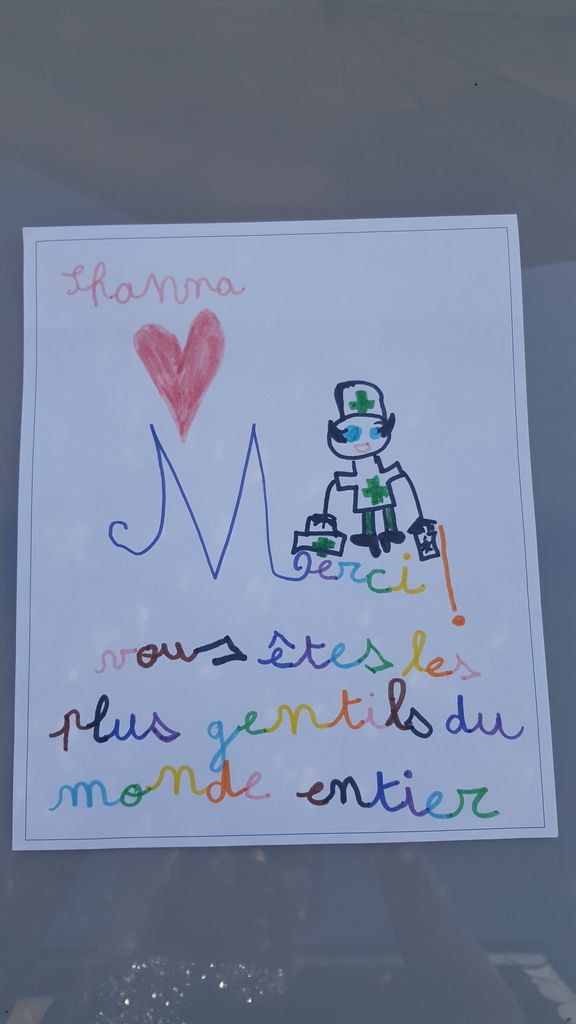 Shanna
Merci !
vous êtes les
plus gentils du
monde entier